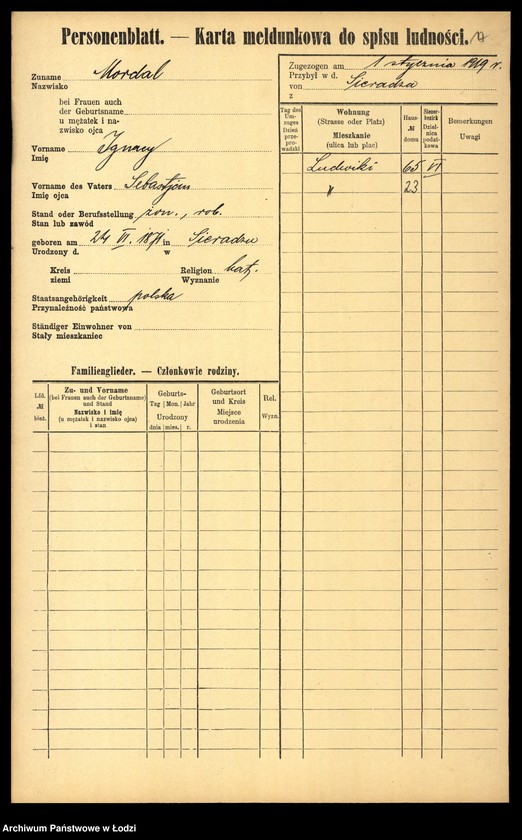 Personenblatt. — Karta meldunkowa do spisu ludności.
Zuname Mordal
Nazwisko
bei Frauen auch
der Geburtsname
u mężatek i na-
zwisko ojca
Vorname Ignacy
Imię
Vorname des Vaters Sebastjan
Imię ojca
Stand oder Berufsstellung żon., rob.
Stan lub zawód
geboren am 24 VI. 1871 in Sieradzu
Urodzony d. w
Kreis
ziemi
Religion kat.
Wyznanie
Staatsangehörigkeit polska
Przynależność państwowa
Ständiger Einwohner von
Stały mieszkaniec
Familienglieder. — Członkowie rodziny.
Lfd. № bież.
Zu- und Vorname
(bei Frauen auch der Geburtsname)
und Stand
Nazwisko i imię
(u mężatek i nazwisko ojca)
i stan
Geburts-
Tag Mon. Jahr
Urodzony
dnia mies. r.
Geburtsort
und Kreis
Miejsce
urodzenia
Rel.
Wyzn.
Zugezogen am 1 stycznia 1919 r.
Przybył w d.
von Sieradza
z
Tag des
Um-
zuges
Dzień
prze-
prowadzki
Wohnung
(Strasse oder Platz)
Mieszkanie
(ulica lub plac)
Haus-
№
domu
Steuer-
bezirk
Dziel-
nica
podat-
kowa
Bemerkungen
Uwagi
Ludwiki 65 VI
" 23
Archiwum Państwowe w Łodzi